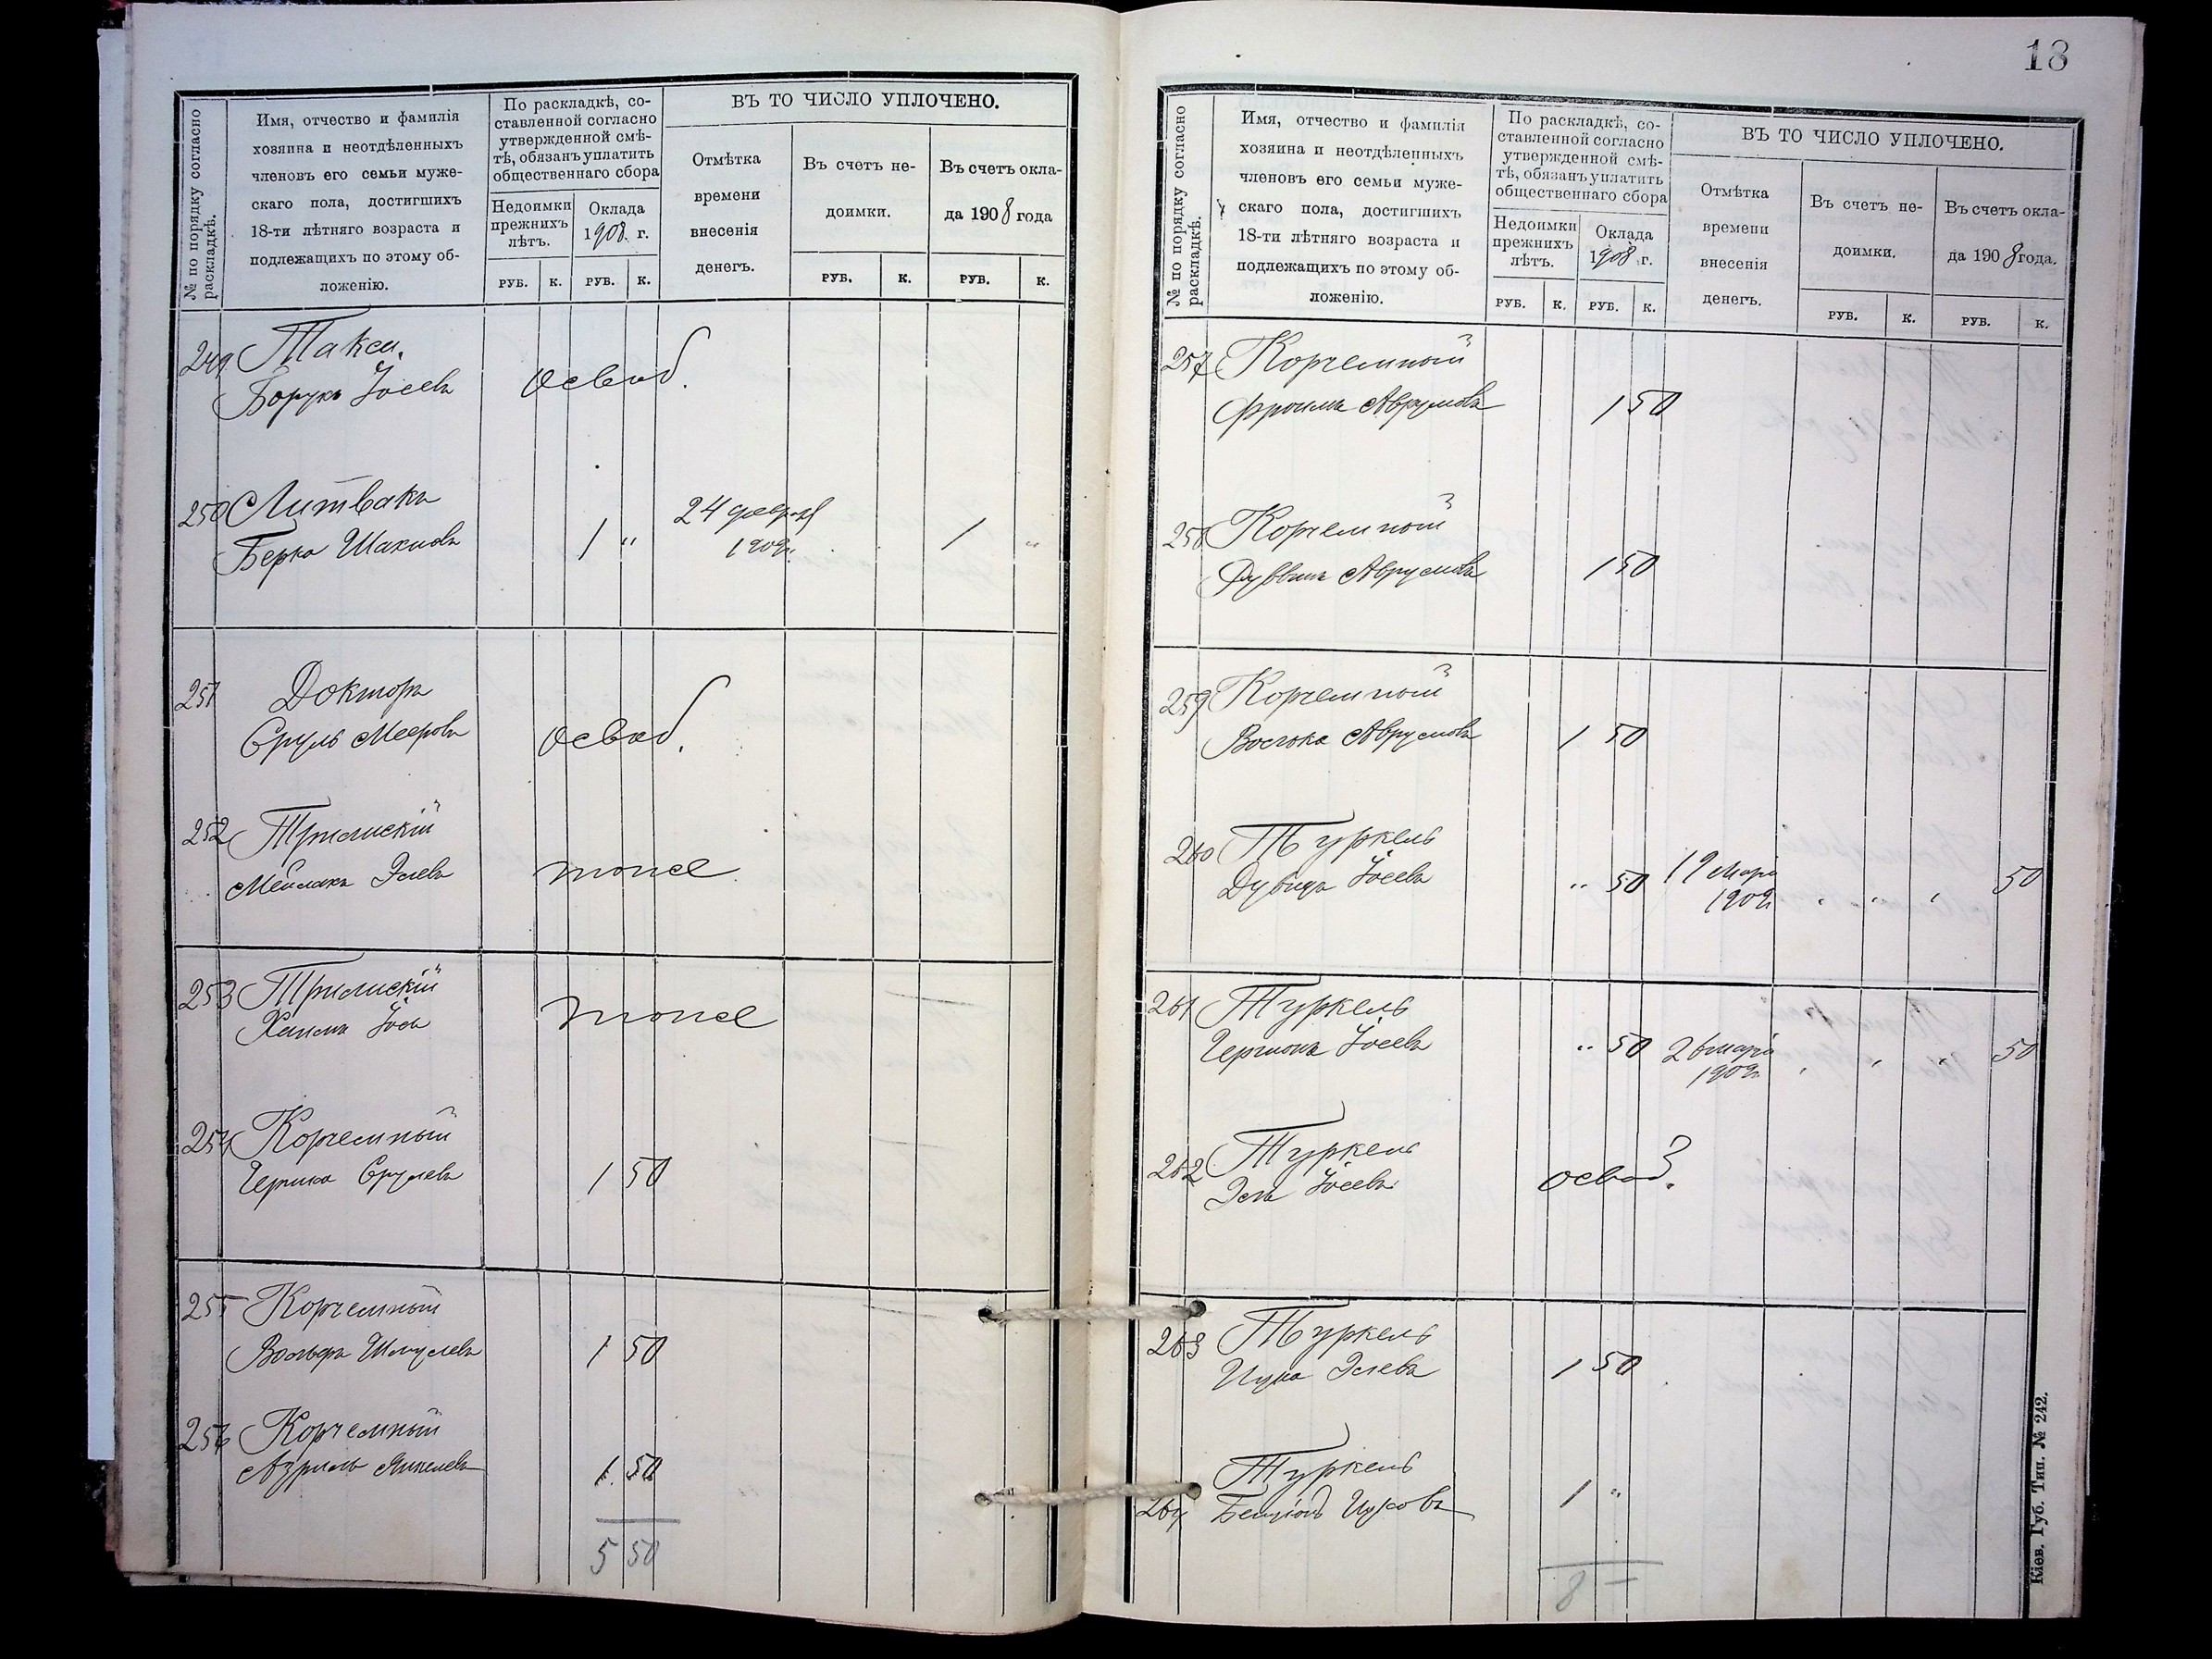 № по порядку согласно раскладкѣ.
Имя, отчество и фамилія
хозяина и неотдѣленныхъ
членовъ его семьи муже-
скаго пола, достигшихъ
18-ти лѣтняго возраста и
подлежащихъ по этому об-
ложенію.
По раскладкѣ, со-
ставленной согласно
утвержденной смѣ-
тѣ, обязанъ уплатить
общественнаго сбора
Недоимки
прежнихъ
лѣтъ.
РУБ. К.
Оклада
1908 г.
РУБ. К.
ВЪ ТО ЧИСЛО УПЛОЧЕНО.
Отмѣтка
времени
внесенія
денегъ.
Въ счетъ не-
доимки.
РУБ. К.
Въ счетъ окла-
да 1908 года
РУБ. К.
249 Такса
Борухъ Іосевъ освоб.
250 Литвакъ
Берко 1 " 24 февраля 1909г. 1 "
251 Докторъ
Сруль Мееровъ освоб.
252 Трилискій
Мейлахъ Элевъ тоже
253 Трилискій
Хаимъ Іосевъ тоже
254 Корчемный
Гершко Срулевъ 1 50
255 Корчемный
Вольфъ Шмулевъ 1 50
256 Корчемный
Азриль Янкелевъ 1 50
5 50
18
№ по порядку согласно раскладкѣ.
Имя, отчество и фамилія
хозяина и неотдѣленныхъ
членовъ его семьи муже-
скаго пола, достигшихъ
18-ти лѣтняго возраста и
подлежащихъ по этому об-
ложенію.
По раскладкѣ, со-
ставленной согласно
утвержденной смѣ-
тѣ, обязанъ уплатить
общественнаго сбора
Недоимки
прежнихъ
лѣтъ.
РУБ. К.
Оклада
1908 г.
РУБ. К.
ВЪ ТО ЧИСЛО УПЛОЧЕНО.
Отмѣтка
времени
внесенія
денегъ.
Въ счетъ не-
доимки.
РУБ. К.
Въ счетъ окла-
да 1908 года.
РУБ. К.
257 Корчемный
Фроимъ Аврумовъ 1 50
258 Корчемный
Аврумовъ 1 50
259 Корчемный
Волько Аврумовъ 1 50
260 Туркель
Дувидъ Іосевъ " 50 19 марта 1909г. 50
261 Туркель
Гершонъ Іосевъ " 50 26 марта 1909г. 50
262 Туркель
Эля Іосевъ освоб.
263 Туркель
Элевъ 1 50
264 Туркель
Бенціонъ 1 "
8 —
Кіев. Губ. Тип. № 242.